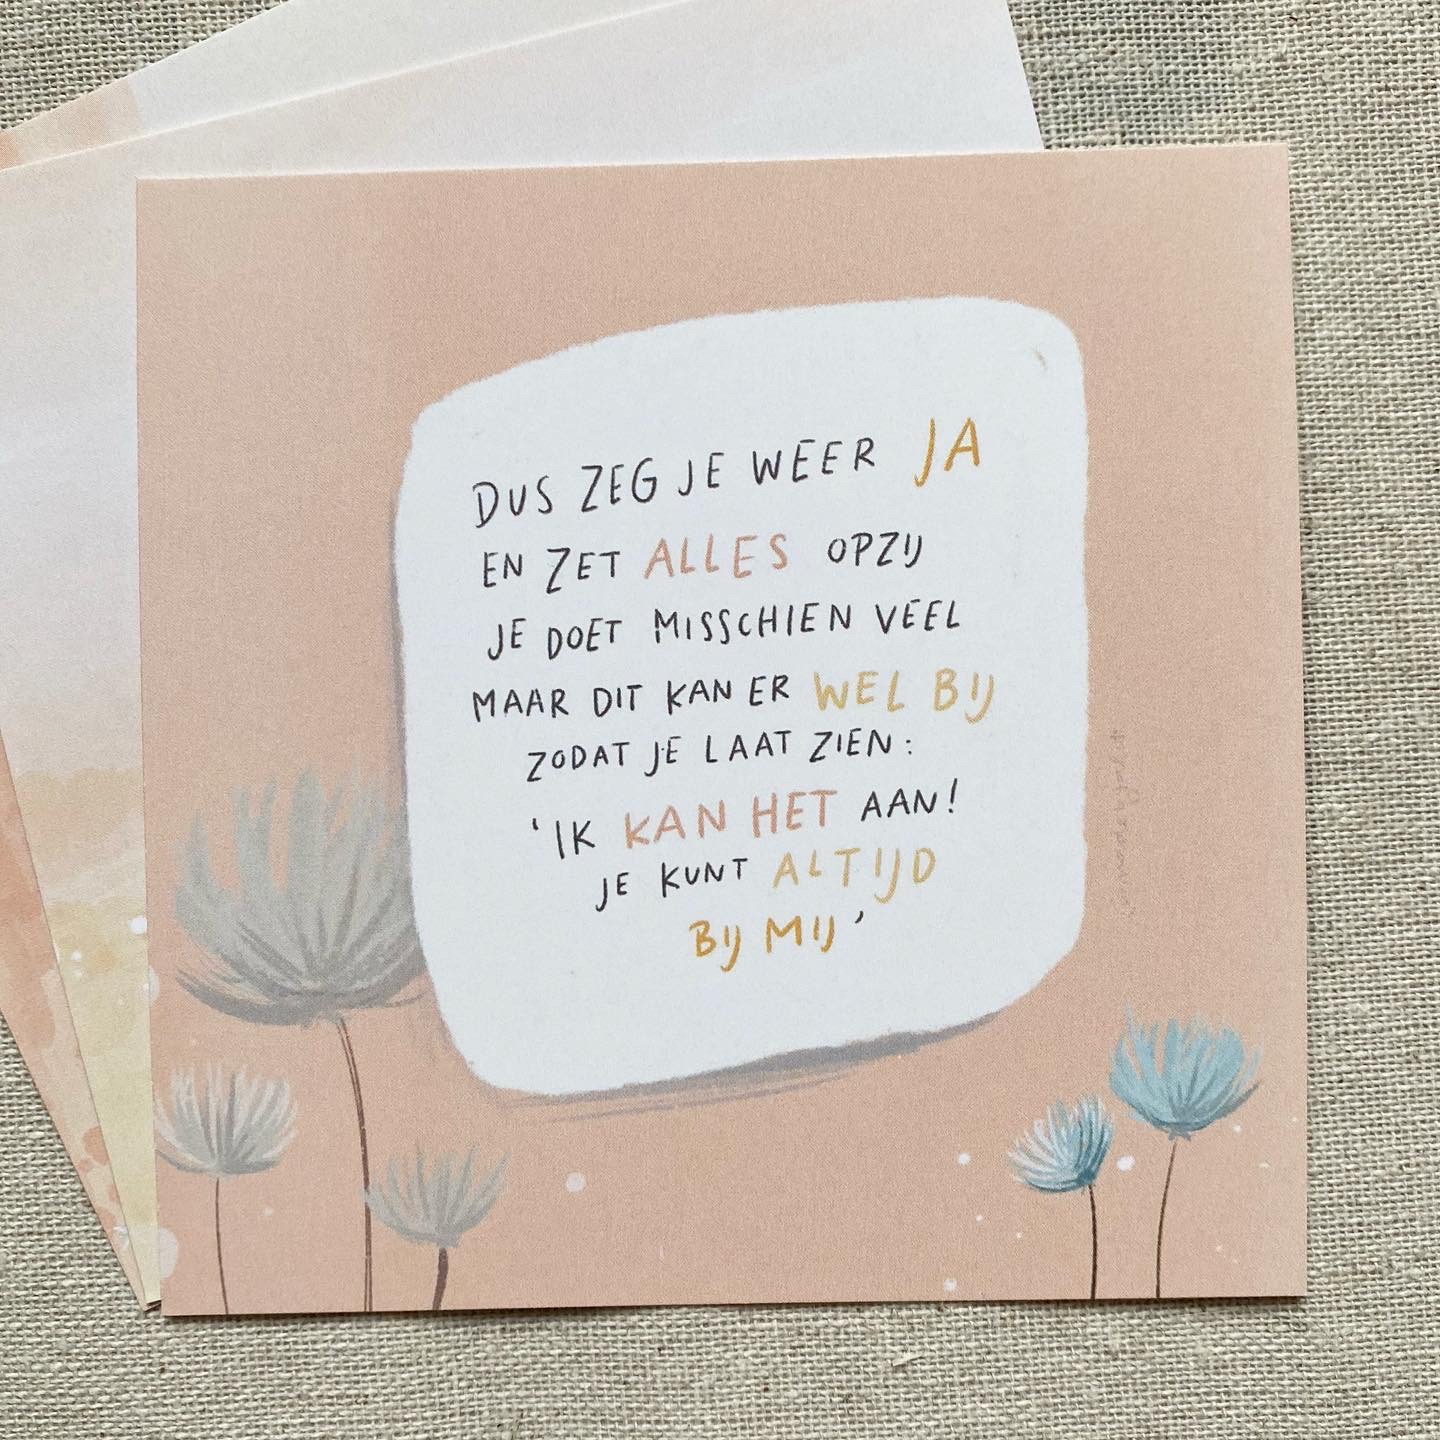 DUS ZEG JE WEER JA
EN ZET ALLES OPZIJ
JE DOET MISSCHIEN VEEL
MAAR DIT KAN ER WEL BIJ
ZODAT JE LAAT ZIEN:
'IK KAN HET AAN!
JE KUNT ALTIJD
BIJ MIJ'